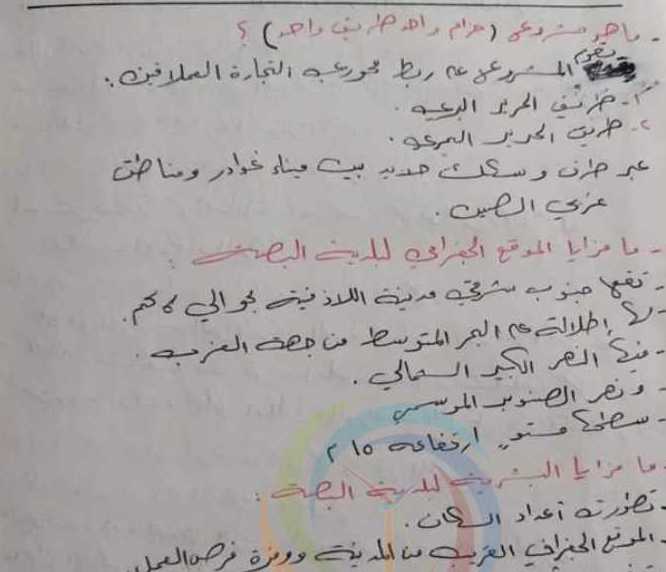 - ما هو مشروع (حزام واحد طريق واحد) ؟
تقوم المشروع على ربط محوري التجارة العملاقين :
١- طريق الحرير البري .
٢- طريق الحرير البحري .
عبر طرق وسكك حديد بين ميناء غوادر ومناطق
غربي الصين .
- ما مزايا الموقع الجغرافي لمدينة البصة :
- تقع جنوب شرقي مدينة اللاذقية بحوالي كم .
- لها إطلالة على البحر المتوسط من جهة الغرب .
- فيها النهر الكبير الشمالي .
- ونهر الصنوبر الموسمي
- سطحها مستو ارتفاعه ١٥ م
- ما مزايا البشرية لمدينة البصة :
- تطورت أعداد السكان .
- الموقع الجغرافي القريب من المدينة ووفرة فرص العمل